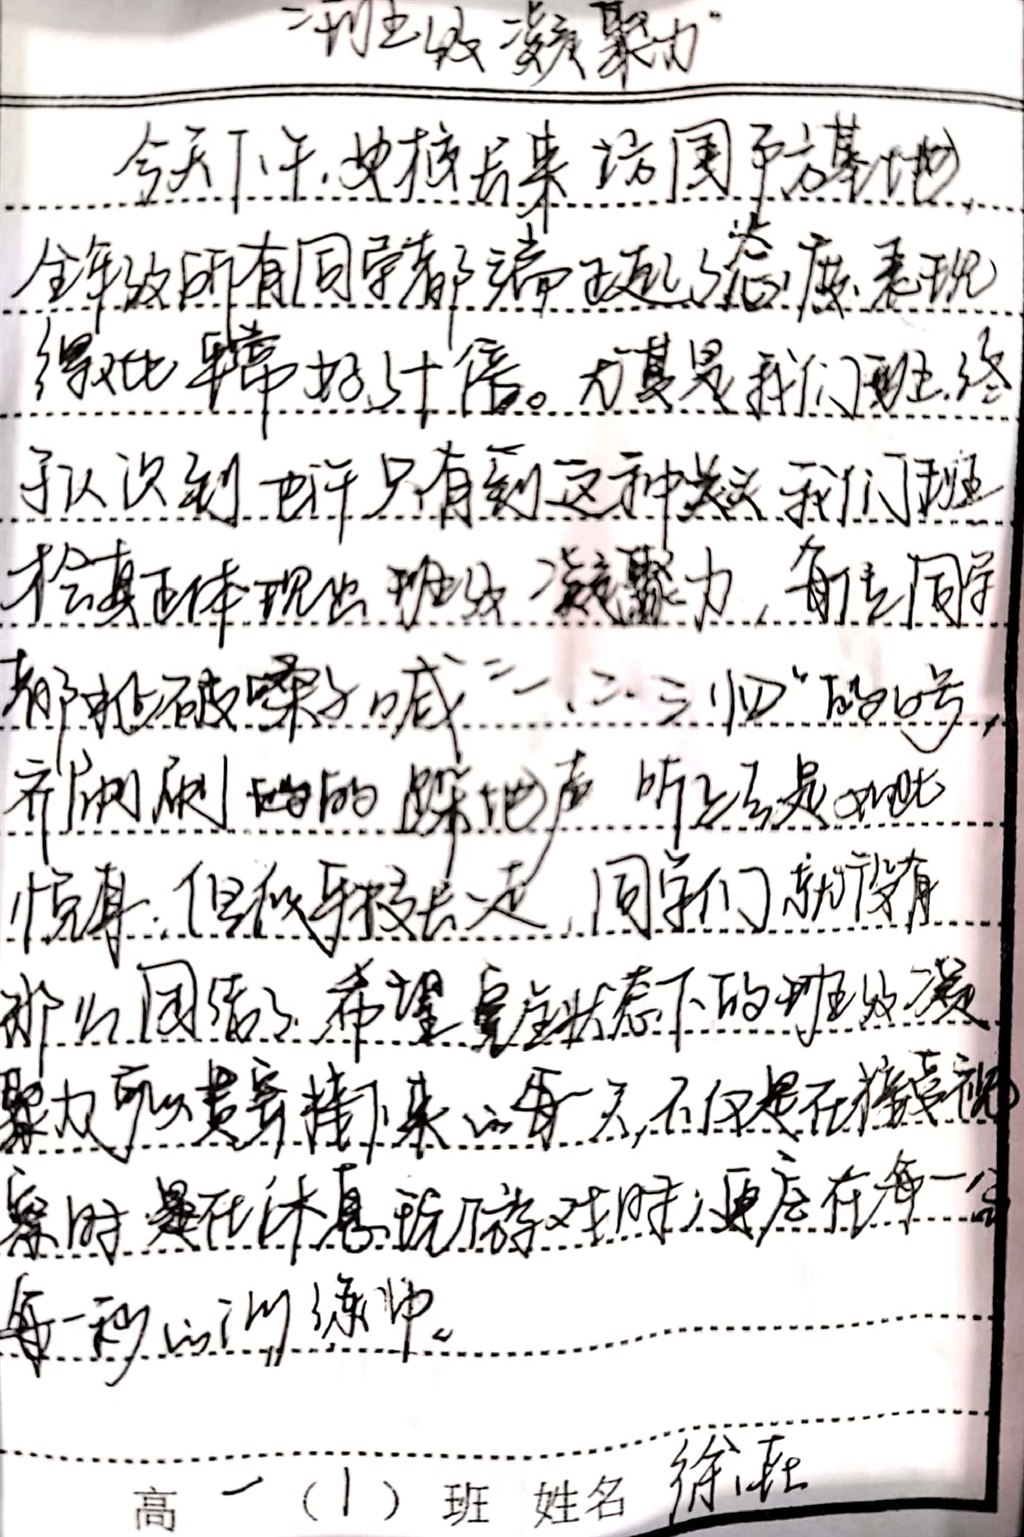 “班级凝聚力”
今天下午,史校长来访国予方基地,
全年级所有同学都端正起了态度,表现
得对比平常好上十倍。尤其是我们班,终
于认识到也许只有到这种关头我们班
才会真正体现出班级凝聚力,每位同学
都扯破嗓子喊“一、二、三、四”的口号,
齐刷刷的的跺地声听上去是如此
悦耳,但似乎校长一走,同学们就没有
那么团结了.希望完全状态下的班级凝
聚力可以贯穿接下来的每一天,不仅是在接受视
察时,是在休息玩游戏时,更应在每一分
每一秒的训练中。
高一(1)班 姓名 徐